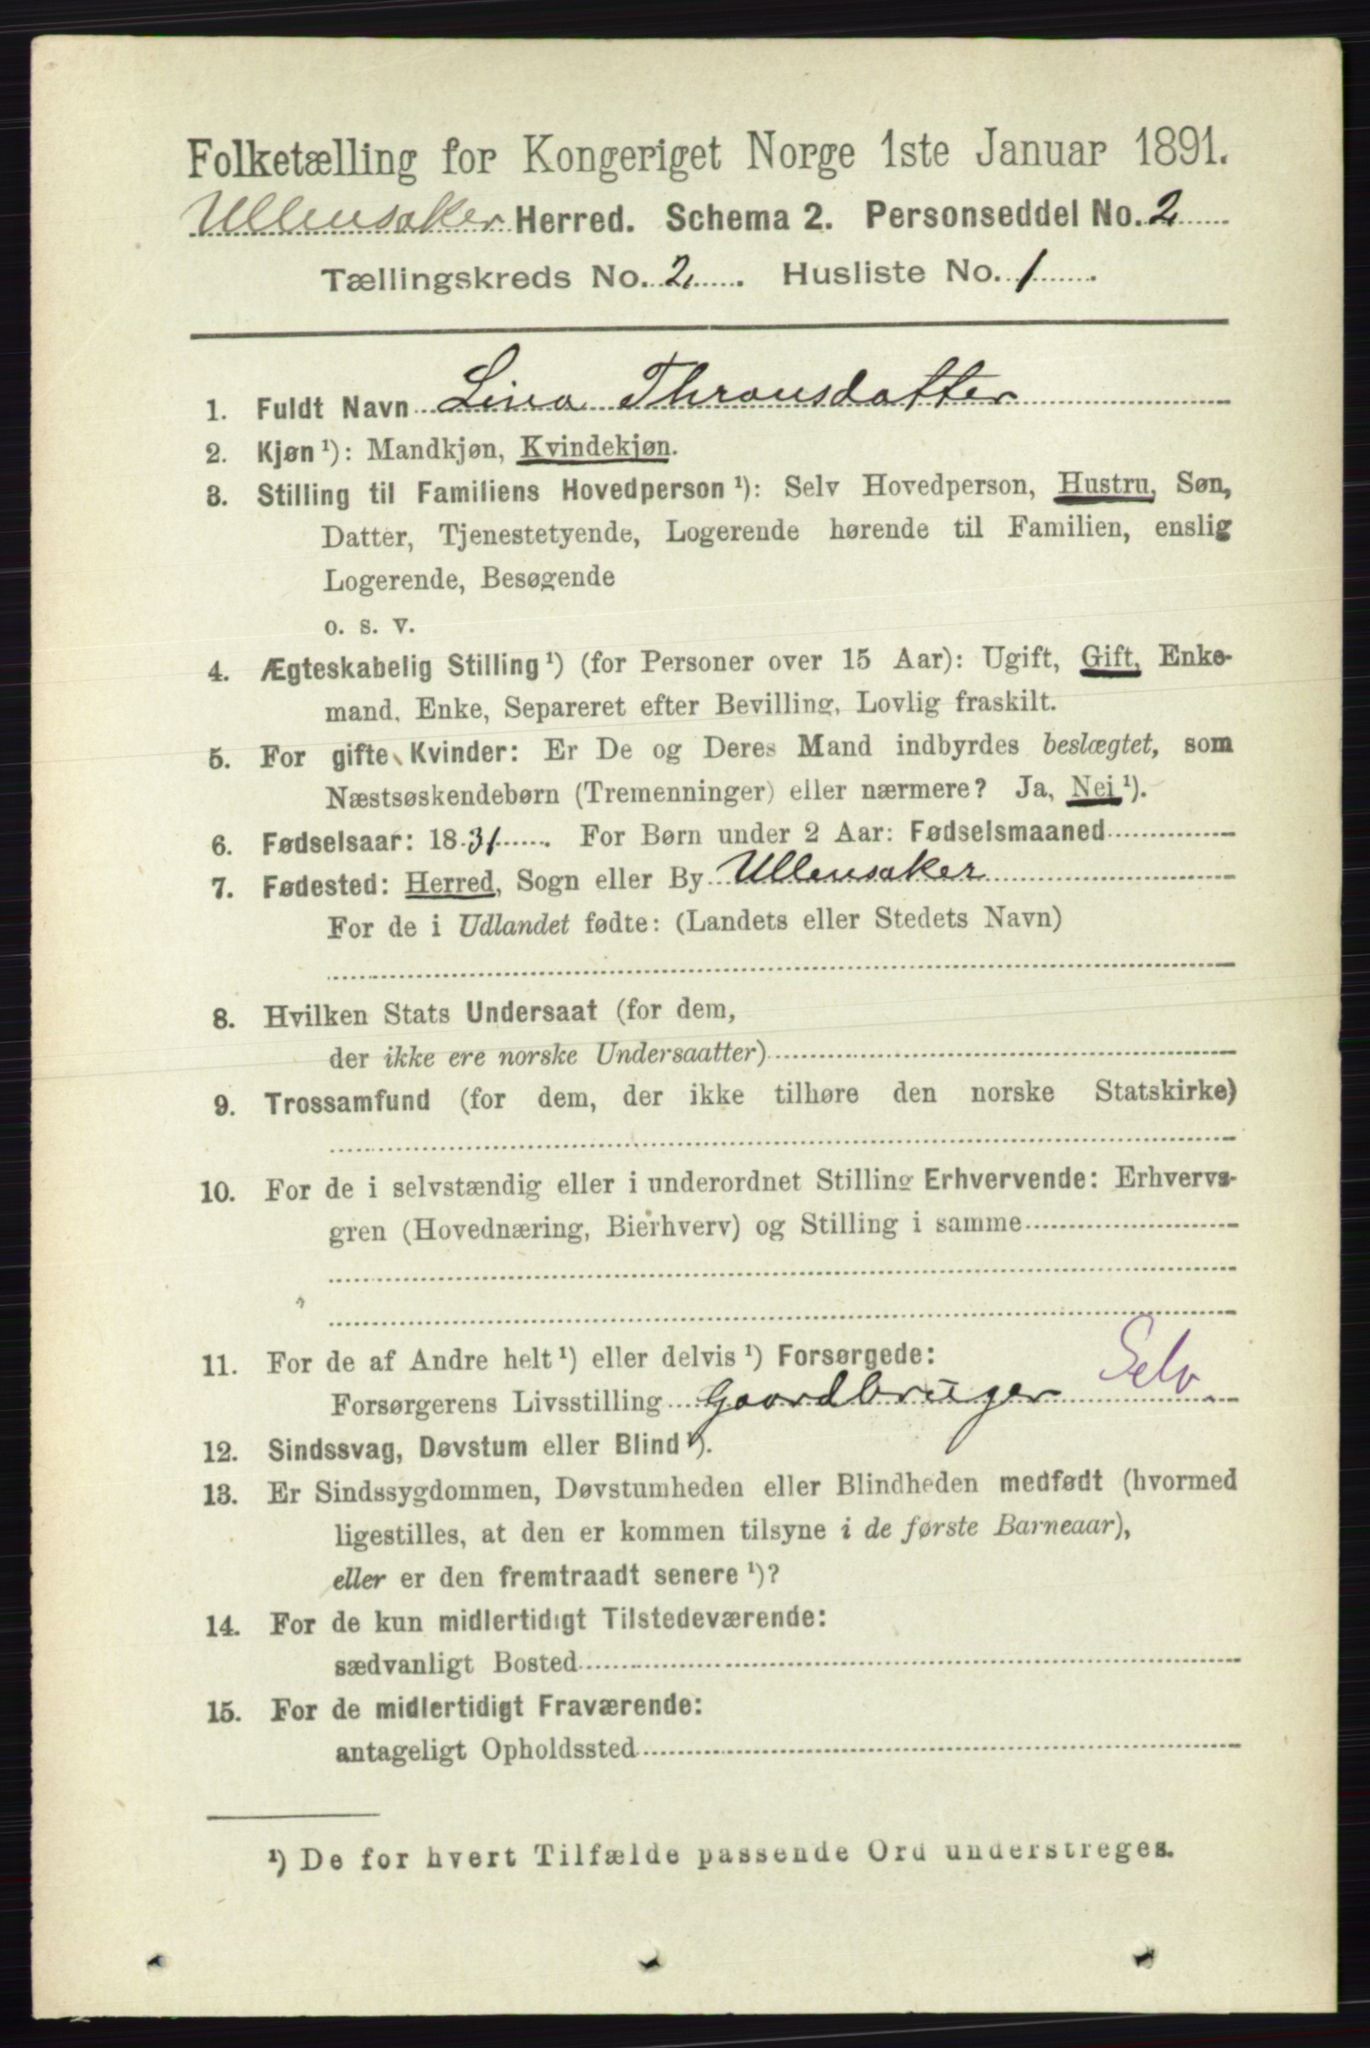 Folketælling for Kongeriget Norge 1ste Januar 1891.
Ullensaker Herred. Schema 2. Personseddel No. 2
Tællingskreds No. 2. Husliste No. 1.
1. Fuldt Navn Lina Thronsdatter
2. Kjøn ¹): Mandkjøn, Kvindekjøn.
3. Stilling til Familiens Hovedperson ¹): Selv Hovedperson, Hustru, Søn,
Datter, Tjenestetyende, Logerende hørende til Familien, enslig
Logerende, Besøgende
o. s. v.
4. Ægteskabelig Stilling ¹) (for Personer over 15 Aar): Ugift, Gift, Enke-
mand, Enke, Separeret efter Bevilling, Lovlig fraskilt.
5. For gifte Kvinder: Er De og Deres Mand indbyrdes beslægtet, som
Næstsøskendebørn (Tremenninger) eller nærmere? Ja, Nei ¹).
6. Fødselsaar: 1831. For Børn under 2 Aar: Fødselsmaaned
7. Fødested: Herred, Sogn eller By Ullensaker
For de i Udlandet fødte: (Landets eller Stedets Navn)
8. Hvilken Stats Undersaat (for dem,
der ikke ere norske Undersaatter)
9. Trossamfund (for dem, der ikke tilhøre den norske Statskirke)
10. For de i selvstændig eller i underordnet Stilling Erhvervende: Erhvervs-
gren (Hovednæring, Bierhverv) og Stilling i samme
11. For de af Andre helt ¹) eller delvis ¹) Forsørgede:
Forsørgerens Livsstilling Gaardbruger Selv.
12. Sindssvag, Døvstum eller Blind ¹).
13. Er Sindssygdommen, Døvstumheden eller Blindheden medfødt (hvormed
ligestilles, at den er kommen tilsyne i de første Barneaar),
eller er den fremtraadt senere ¹)?
14. For de kun midlertidigt Tilstedeværende:
sædvanligt Bosted
15. For de midlertidigt Fraværende:
antageligt Opholdssted
¹) De for hvert Tilfælde passende Ord understreges.